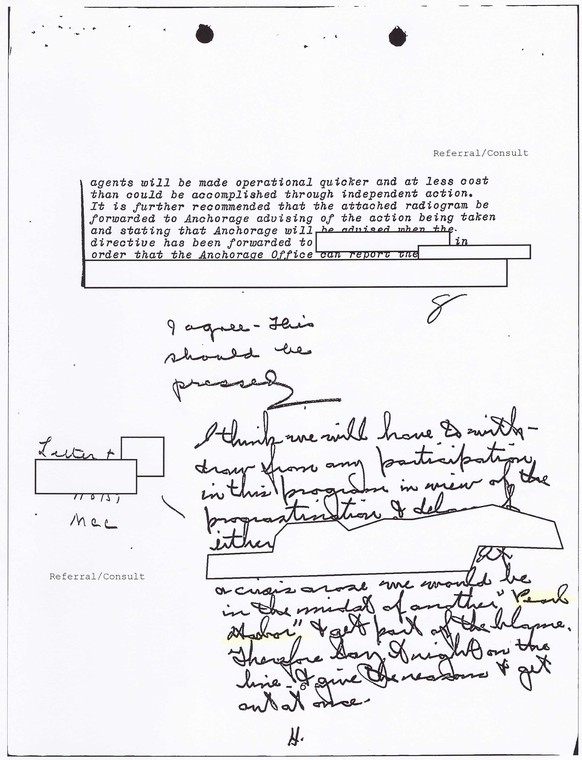 Referral/Consult
agents will be made operational quicker and at less cost
than could be accomplished through independent action.
It is further recommended that the attached radiogram be
forwarded to Anchorage advising of the action being taken
and stating that Anchorage will be advised when the
directive has been forwarded to in
order that the Anchorage Office can report the
I agree - This
should be
pressed
I think we will have to with-
draw from any participation
in this program in view of the
procrastination & delay of
either
Letter +
Mcc
Referral/Consult
If
a crisis arose we would be
in the midst of another "Pearl
Harbor" & get part of the blame.
Therefore lay it right on the
line & give the reasons & get
out at once.
H.